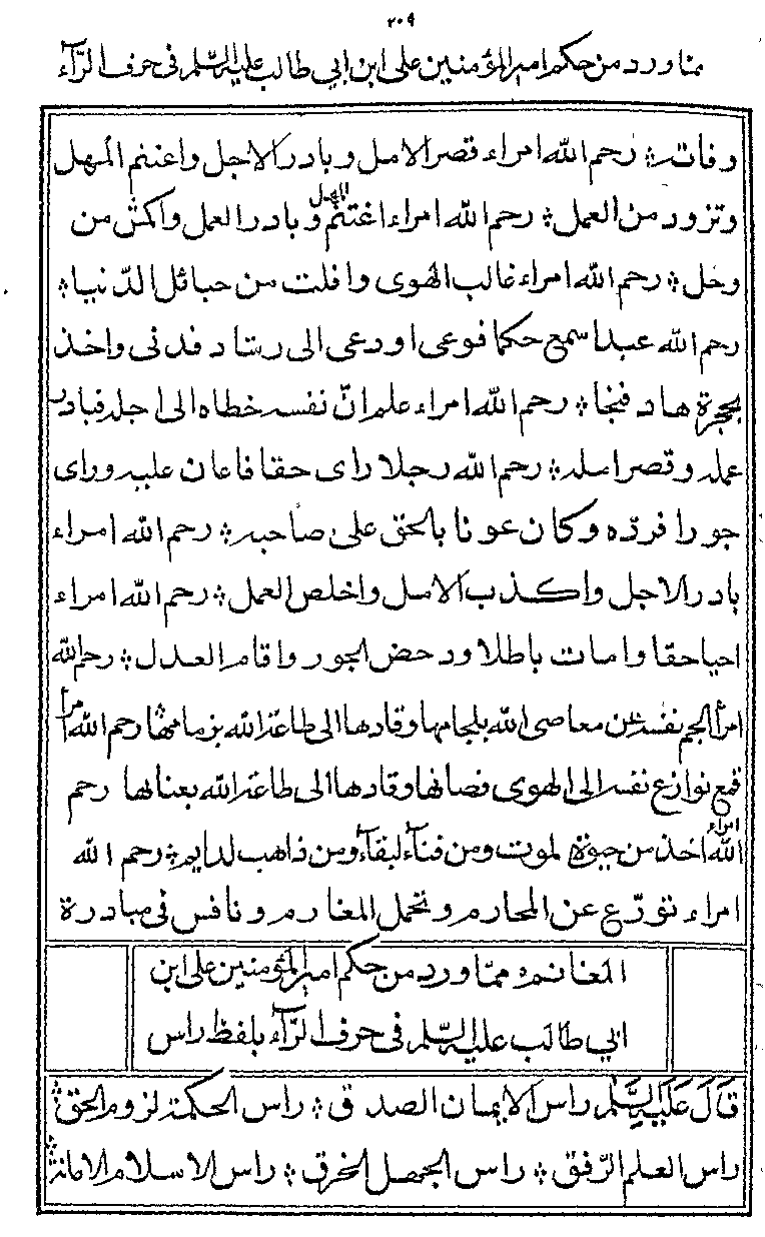 ٢٠٩
مما ورد من حكم امير المؤمنين على ابن ابي طالب عليه السّلم فى حرف الرّآء
وفات ؞ رحم الله امراء قصر الامل وبادر الاجل واغتنم المهل
وتزود من العمل ؞ رحم الله امراء اغتنم المهل وبادر العمل واكمش من
وجل ؞ رحم الله امراء غالب الهوى وافلت من حبائل الدّنيا ؞
رحم الله عبدا سمع حكما فوعى او دعى الى رشاد فدنى واخذ
بحجزة هاد فنجا ؞ رحم الله امراء علم انّ نفسه خطاه الى اجله فبادر
عمله وقصر امله ؞ رحم الله رجلا راى حقا فاعان عليه وراى
جورا فردّه وكان عونا بالحق على صاحبه ؞ رحم الله امراء
بادر الاجل واكذب الامل واخلص العمل ؞ رحم الله امراء
احيا حقا وامات باطلا ودحض الجور واقام العدل ؞ رحم الله
امرأ الجم نفسه عن معاصى الله بلجامها وقادها الى طاعة الله بزمامها ؞ رحم الله امرأ
قمع نوازع نفسه الى الهوى فصانها وقادها الى طاعة الله بعنانها رحم
الله امراء اخذ من حيوة لموت ومن فنآء لبقآء ومن ذاهب لدايم ؞ رحم الله
امراء تورّع عن المحارم وتحمل المغارم ونافس فى مبادرة
الغانم ه ممّا ورد من حكم امير المؤمنين على ابن
ابي طالب عليه السّلم فى حرف الرّآء بلفظ راس
قال عليه السّلم راس الايمان الصدق ؞ راس الحكمة لزوم الحق ؞
راس العلم الرّفق ؞ راس الجهل الخرق ؞ راس الاسلام الامانة ؞